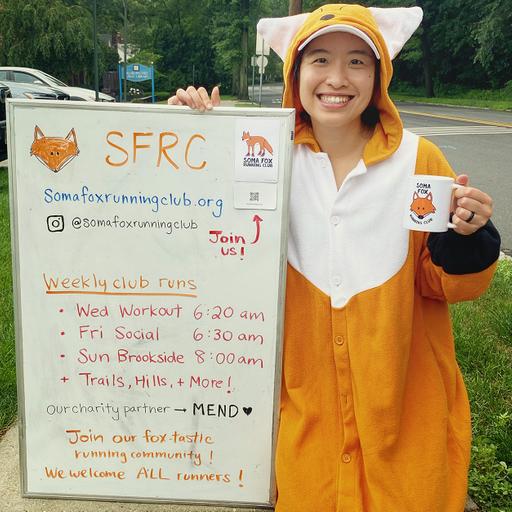 SFRC
SOMA FOX
RUNNING CLUB
Somafoxrunningclub.org
@somafoxrunningclub
Join
us!
Weekly club runs
• Wed Workout 6:20 am
• Fri Social 6:30 am
• Sun Brookside 8:00 am
+ Trails, Hills, + More!
Our charity partner → MEND ♥
Join our fox-tastic
running community!
We welcome ALL runners!
SOMA
FOX
RUNNING CLUB